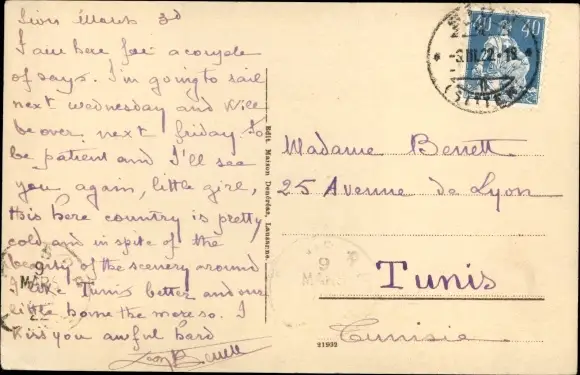 Sion March 3d
I am here for a couple
of days. I'm going to sail
next wednesday and will
be over next friday. So
be patient and I'll see
you again, little girl,
this here country is pretty
cold and in spite of the
beauty of the scenery around
I like Tunis better and our
little home the more so. I
kiss you awful hard
Leon Benett
Edit. Maison Dendréas, Lausanne.
40 40
-3.III.22.-18
(SITTEN)
Madame Benett
25 Avenue de Lyon
Tunis
Tunisie
21992